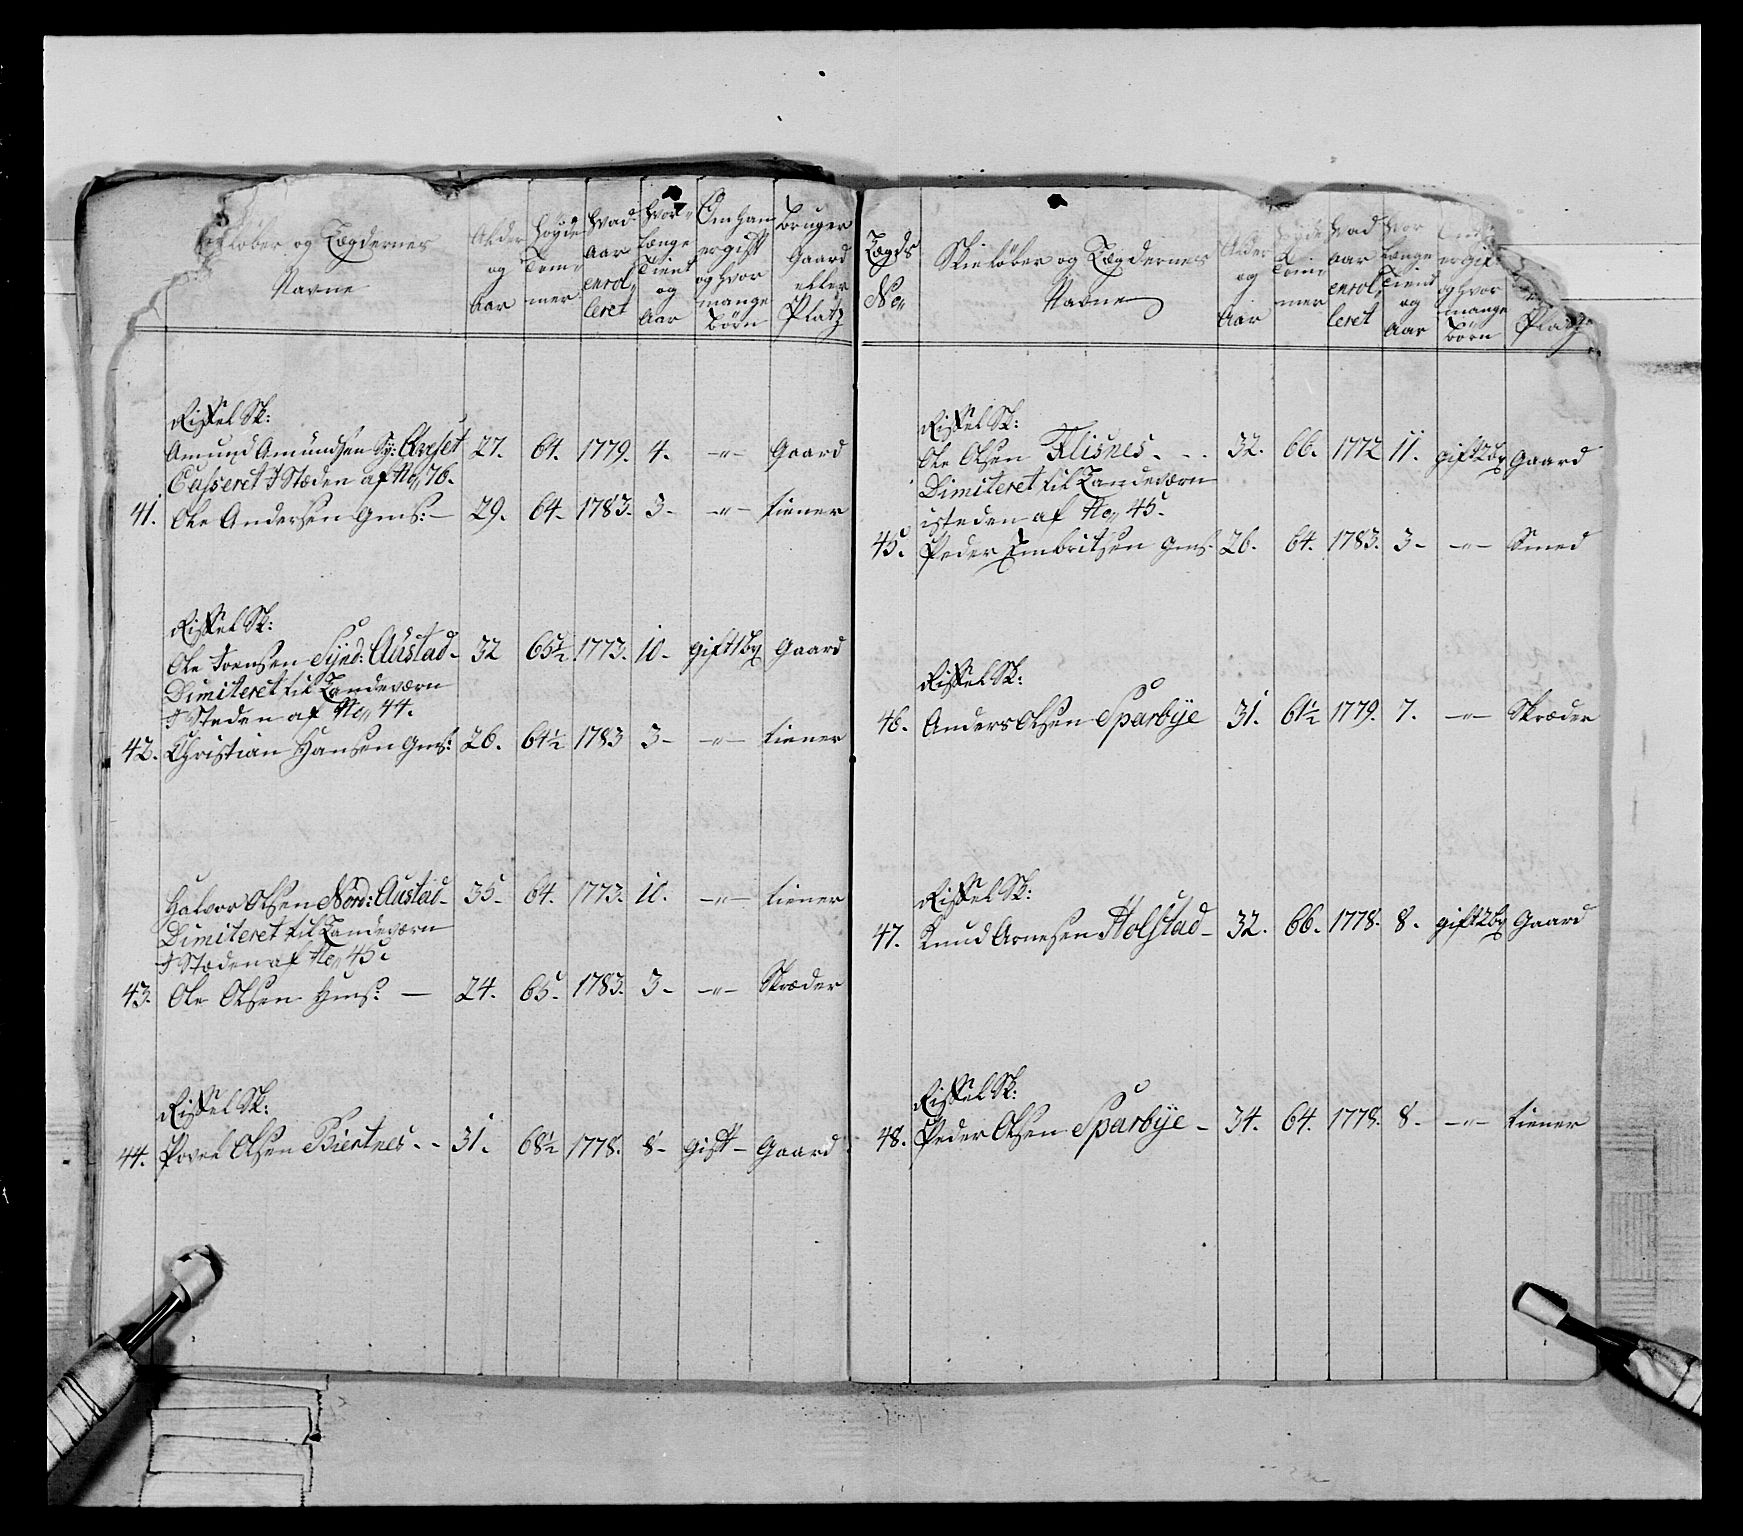 løber og Lægdernes
Navne
Alder
og
Aar
Höyde
Tom-
mer
Hvad
Aar
enrol-
leret
Hvor-
længe
Tient
og
Aar
Om han
er gift
og hvor
mange
börn
bruger
Gaard
eller
Platz
Riffel Sk:
Amund Amundsen Sy: 27. 64. 1779. 4. -"- Gaard
Casseret I Stæden af No 76.
41. Ole Andersen Gms: - 29. 64- 1783. 3- -"- tiener
Riffel Sk:
Ole Joensen Synd: Austad- 32 65½ 1773. 10- gift 1 bn Gaard
Dimiteret til Landeværn
I Steden af No 44.
42. Christian Hansen Gms: 26. 64½ 1783 3- -"- tiener
Halvor Olsen Nord: Austad- 35- 64. 1773. 10. -"- tiener
Dimiteret til Landeværn
I Stæden af No 45
43. Ole Olsen Hms: - 24. 65- 1783. 3- -"- Skræder
Riffel Sk:
44. Povel Olsen Biertnes - - 31. 68½ 1778. 8- gift- Gaard
Lægds
No
Skieløber og Lægdernes
Navne
Alder
og
Aar
Höyde
Tom-
mer
Hvad
Aar
enrol-
leret
Hvor
længe
Tient
og
Aar
er gift
og hvor
mange
börn
Platz
Riffel Sk:
Ole Olsen Flisnes - - . 32. 66. 1772 11. gift 2 bn Gaard
Dimiteret til Landeværn
isteden af No 45-
45. Peder Embritsen Gms- 26. 64. 1783. 3- -"- Smed
Riffel Sk:
46. Anders Olsen Sparbye 31. 61½ 1779. 7. -"- Skræder
Riffel Sk:
47. Knud Arnesen Holstad- 32. 66. 1778. 8. gift 2 bn Gaard
Riffel Sk:
48. Peder Olsen Sparbye - 34. 64. 1778. 8- -"- tiener